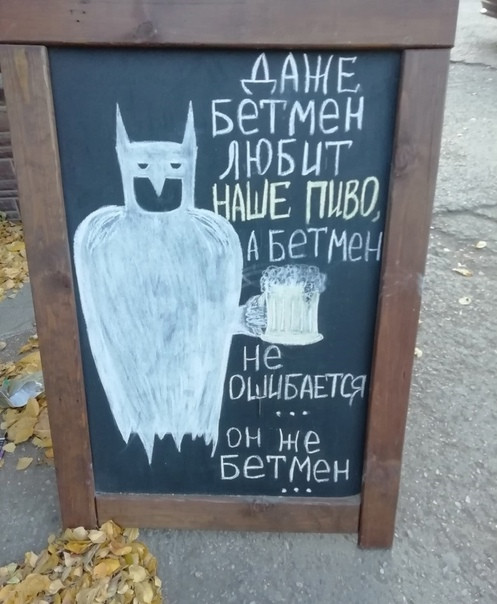 ДАЖЕ
БЕТМЕН
ЛЮБИТ
НАШЕ ПИВО,
А БЕТМЕН
НЕ
ОШИБАЕТСЯ
...
ОН ЖЕ
БЕТМЕН
...